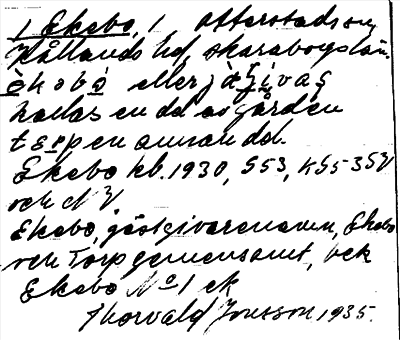 1 Ekebo, 1 Otterstads sn,
Kållands hd, skaraborgs län.
èkobò eller jä ivas
kallas en del av gården
tɛrpen annan del.
Ekebo kb. 1930, S53, KS5
och N
Ekebo, gästgivarenamn, Ekebo
och Torp gemensamt, bek
Ekebo No 1 ek
Thorvald Jonsson 1935.